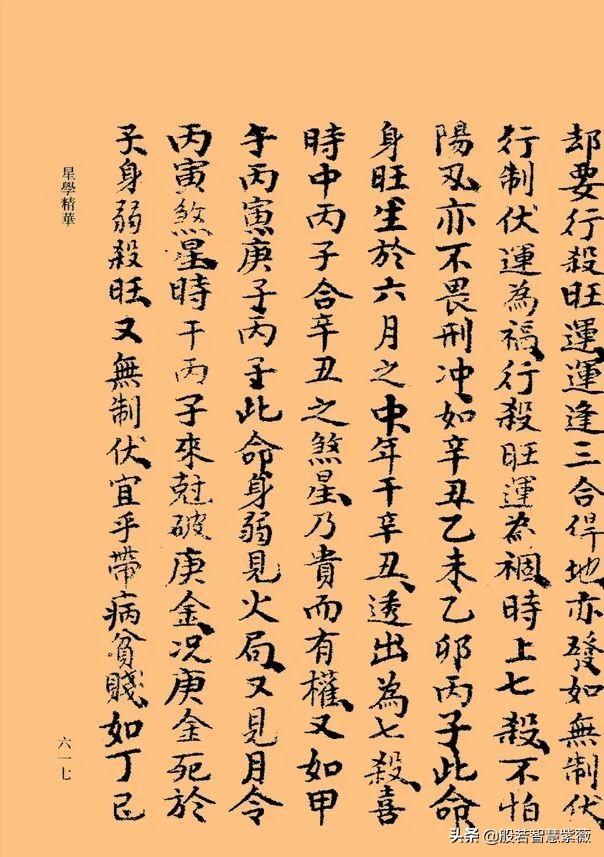 却要行殺旺運運逢三合得地亦發如無制伏
行制伏運為福行殺旺運為禍時上七殺不怕
陽刃亦不畏刑冲如辛丑乙未乙卯丙子此命
身旺生於六月之中年干辛丑透出為七殺喜
時中丙子合辛丑之煞星乃貴而有權又如甲
午丙寅庚子丙子此命身弱見火局又見月令
丙寅煞星時干丙子來尅破庚金况庚金死於
子身弱殺旺又無制伏宜乎帶病貧賤如丁巳
星學精華
六一七
头条 @般若智慧紫薇